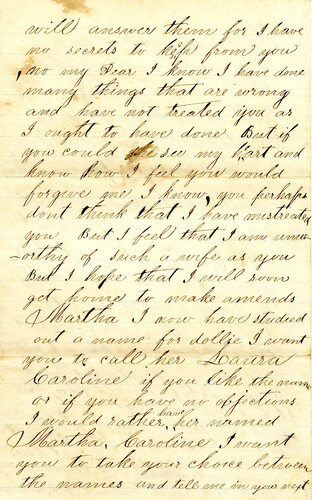 will answer them for I have
no secrets to kep from you
no my Dear I know I have done
many things that are wrong
and have not treated you as
I ought to have done But if
you could see my hart and
know how I feel you would
forgive me I know, you perhaps
dont think that I have mestreated
you But I feel that I am unwo
-orthy of such a wife as you
But I hope that I will soon
get home to make amends
Martha I now have studied
out a name for dollie I want
you to call her Laura
Caroline if you like the name
or if you have no obfections
I would rather have her named
Martha, Caroline I want
you to take your choice between
the names and tell me in your next